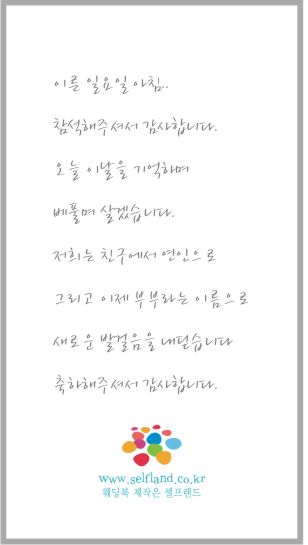 이른 일요일 아침..
참석해주셔서 감사합니다.
오늘 이날을 기억하며
베풀며 살겠습니다.
저희는 친구에서 연인으로
그리고 이제 부부라는 이름으로
새로운 발걸음을 내딛습니다
축하해주셔서 감사합니다.
www.selfland.co.kr
웨딩북 제작은 셀프랜드